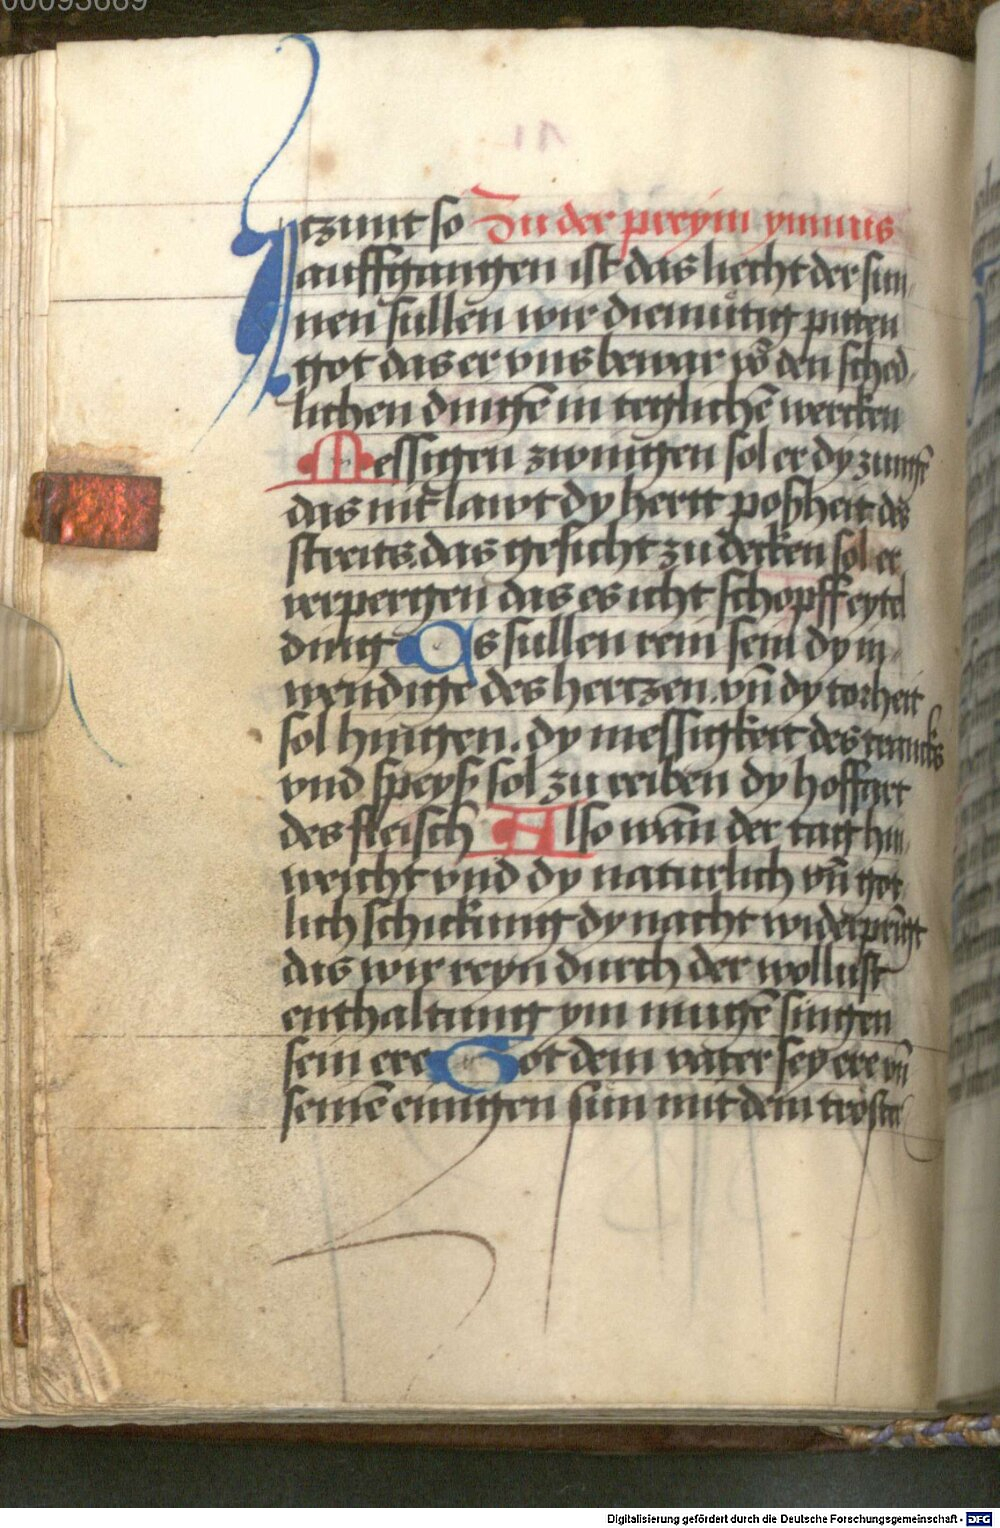 00093669
Itzunt so Zu der preym ymnus
auffgangen ist das liecht der sun
nen sullen wir diemutig piten
got das er vns bewar vō den sched
lichen dingē in teglichē wercken
Messigen zwingen sol er dy zungē
das nit lawt dy hertt posheit des
streits. das gesicht zu decken sol er
verpergen das es icht schopff eytel
ding Es sullen rein sein dy in
wendige des hertzen. vn̄ dy torheit
sol hingen. dy messigkeit des trancks
vnd speyß sol zu reiben dy hoffart
des fleisch Also wān der tag hin
weicht vnd dy naturlich vn̄ got
lich schickung dy nacht widerpringt
das wir reyn durch der wollust
enthaltung ym mugē singen
sein ere Got dem vater sey ere vn̄
seinē einigen sun mit dem tröster
Digitalisierung gefördert durch die Deutsche Forschungsgemeinschaft - DFG